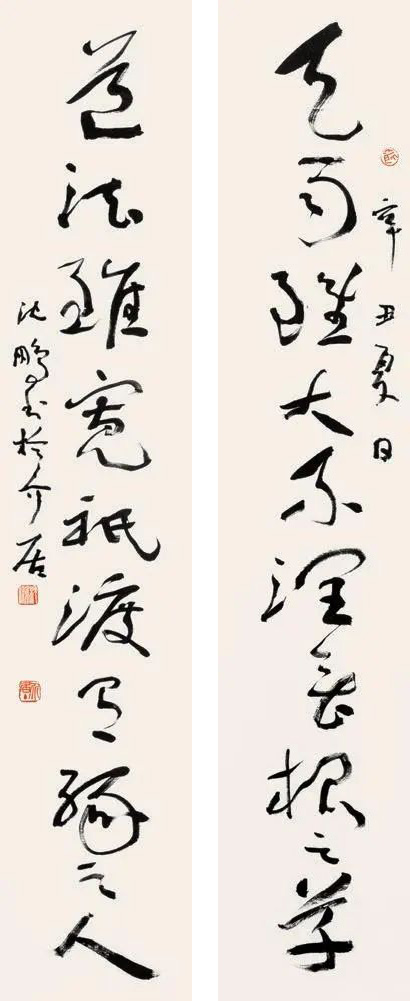 辛丑夏日
天雨雖大不潤無根之草
道法雖寬祇渡有緣之人
沈鵬書於介居